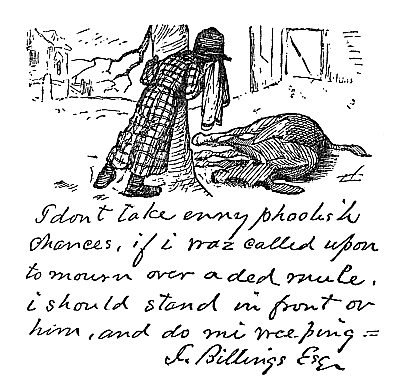 I don't take enny phoolish
chances, if i waz called upon
to mourn over a ded mule,
i should stand in front ov
him, and do mi weeping =
J. Billings Esq